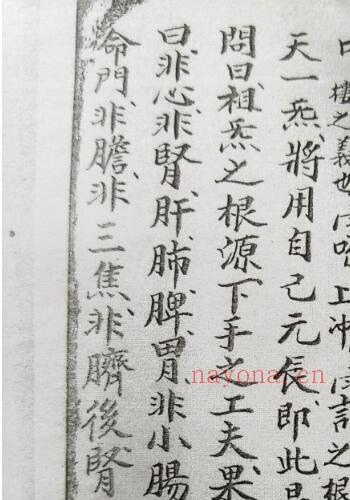 樓之義也 上冲 之根
天一炁、將用自己元辰、即此
問曰、祖炁之根源下手之工夫果
曰、非心、非腎、肝、肺、脾、胃、非小腸
命門、非膽、非三焦、非臍後腎
nayona.cn